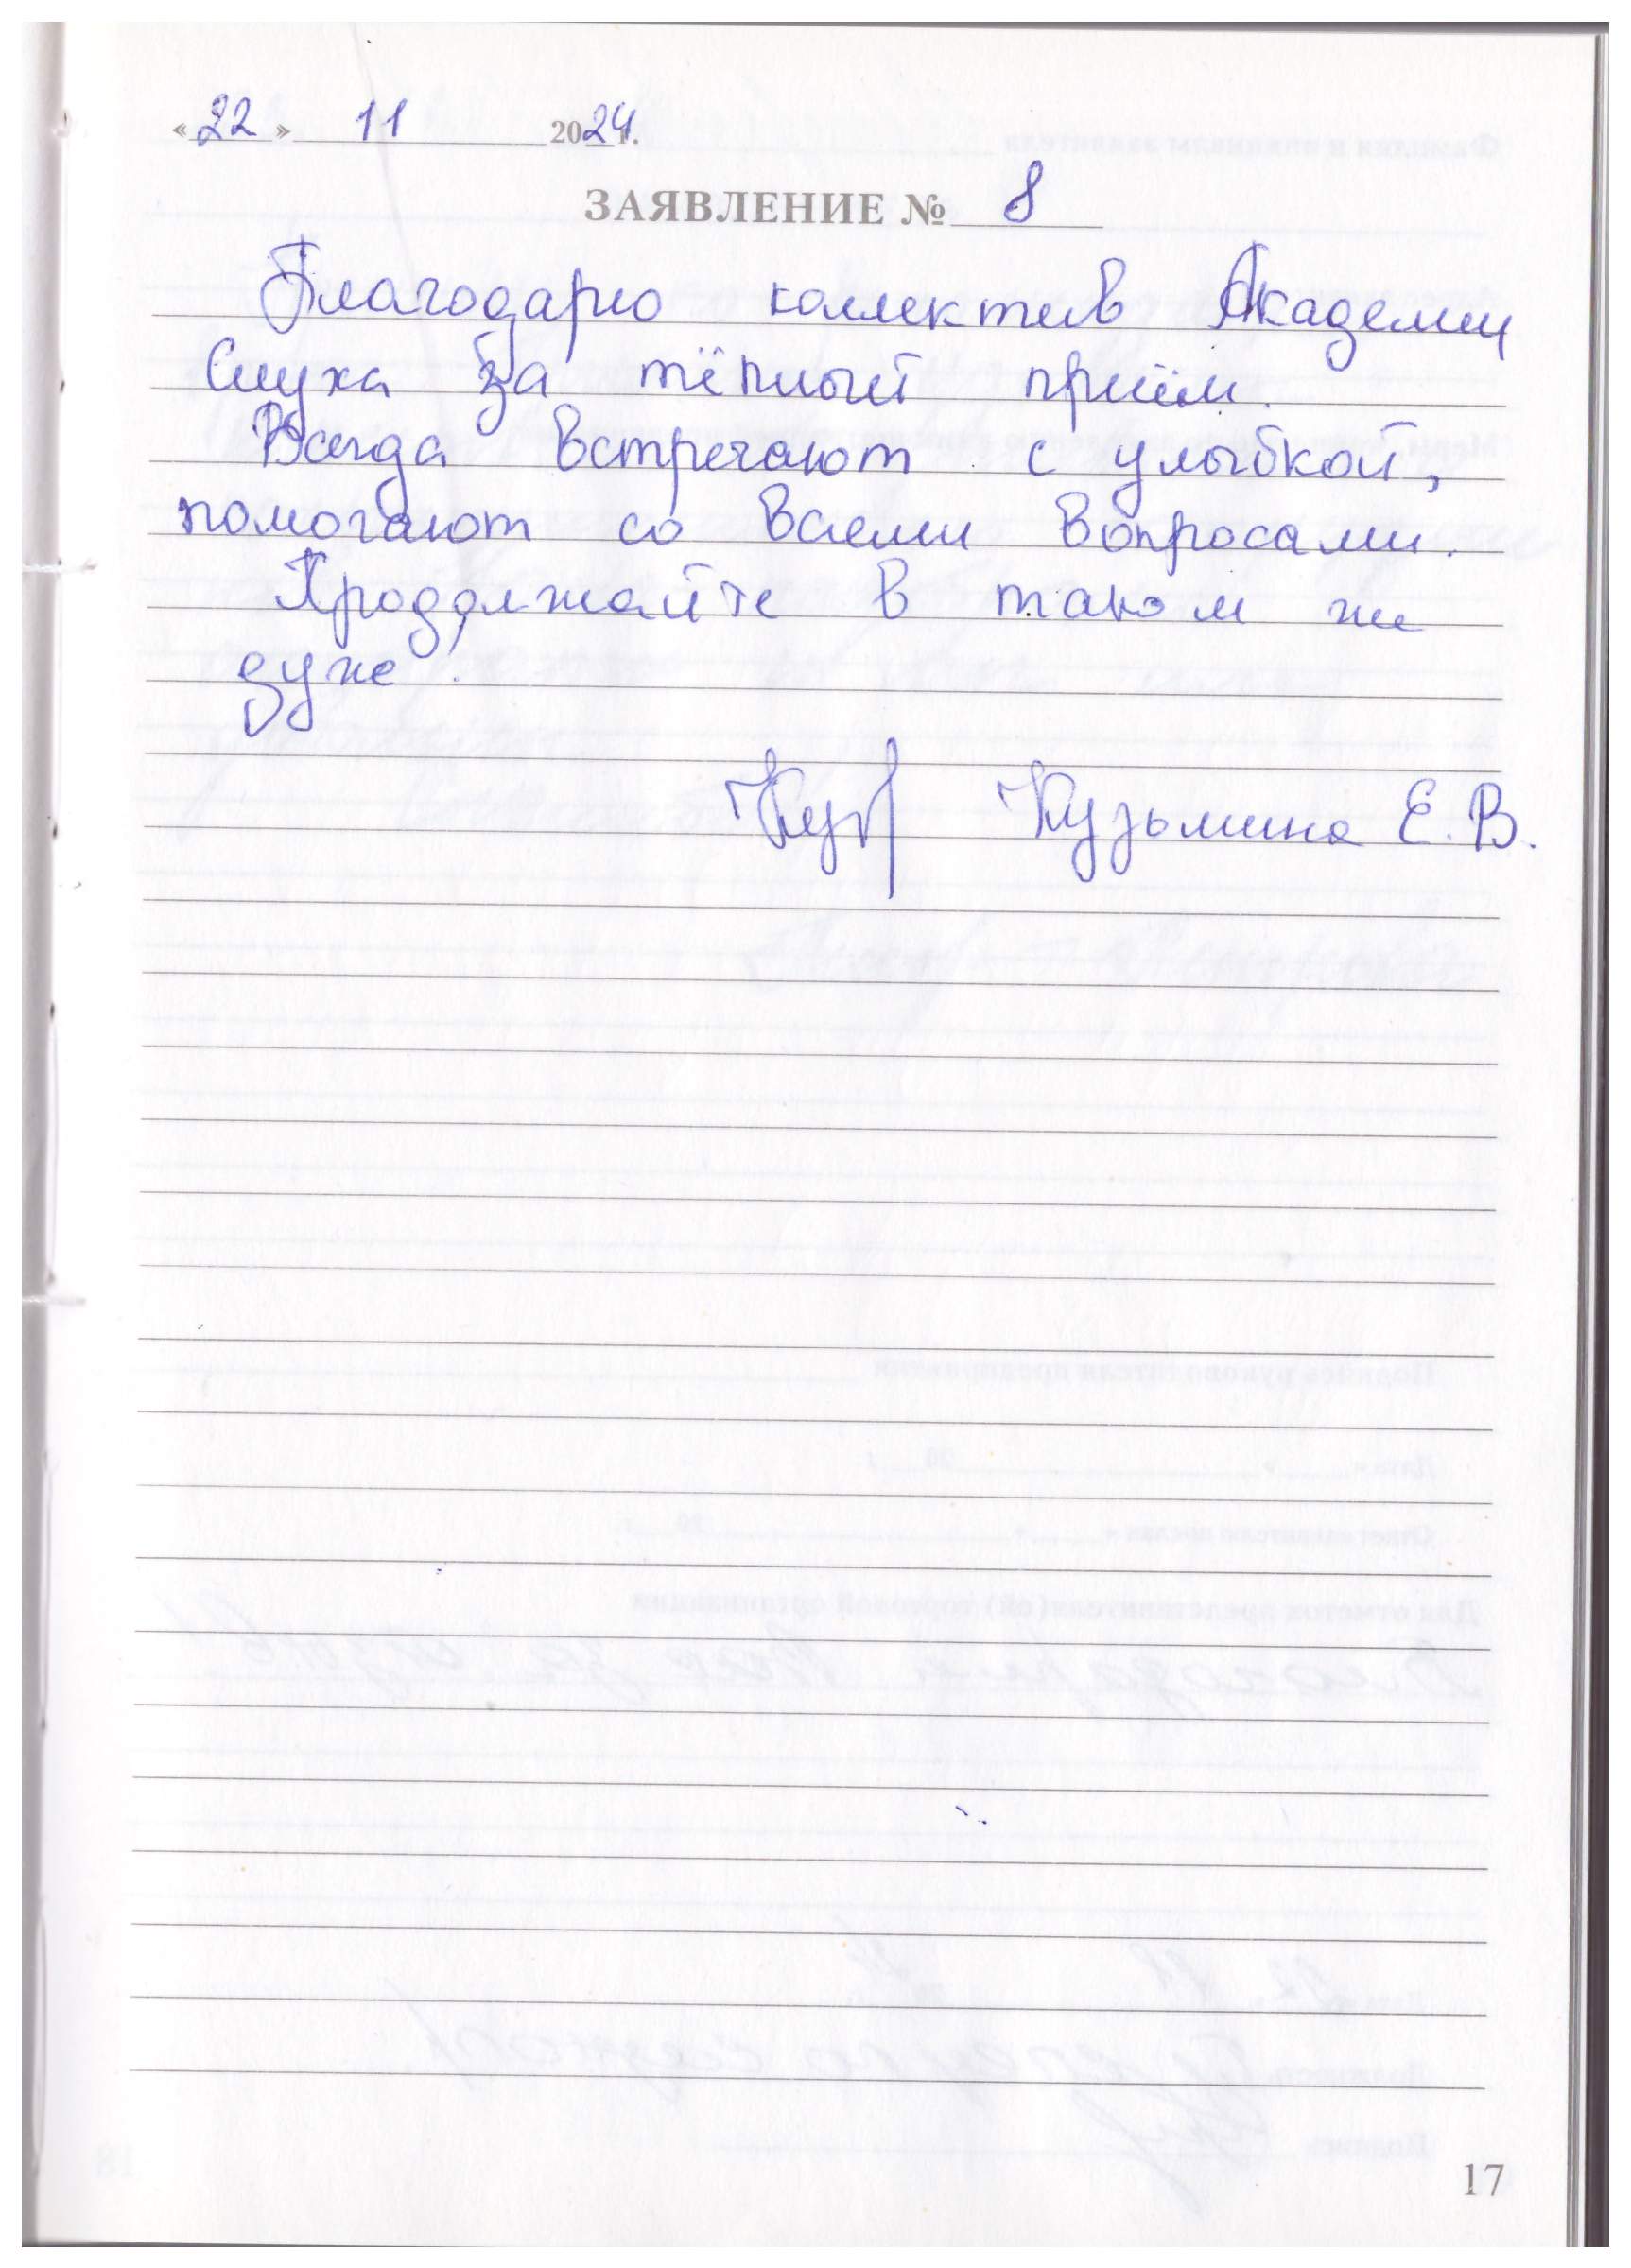 «22» 11 2024г.
ЗАЯВЛЕНИЕ № 8
Благодарю коллектив Академии
Слуха за тёплый приём.
Всегда встречают с улыбкой,
помогают со всеми вопросами.
Продолжайте в таком же
духе!
Кузьмина Е.В.
17